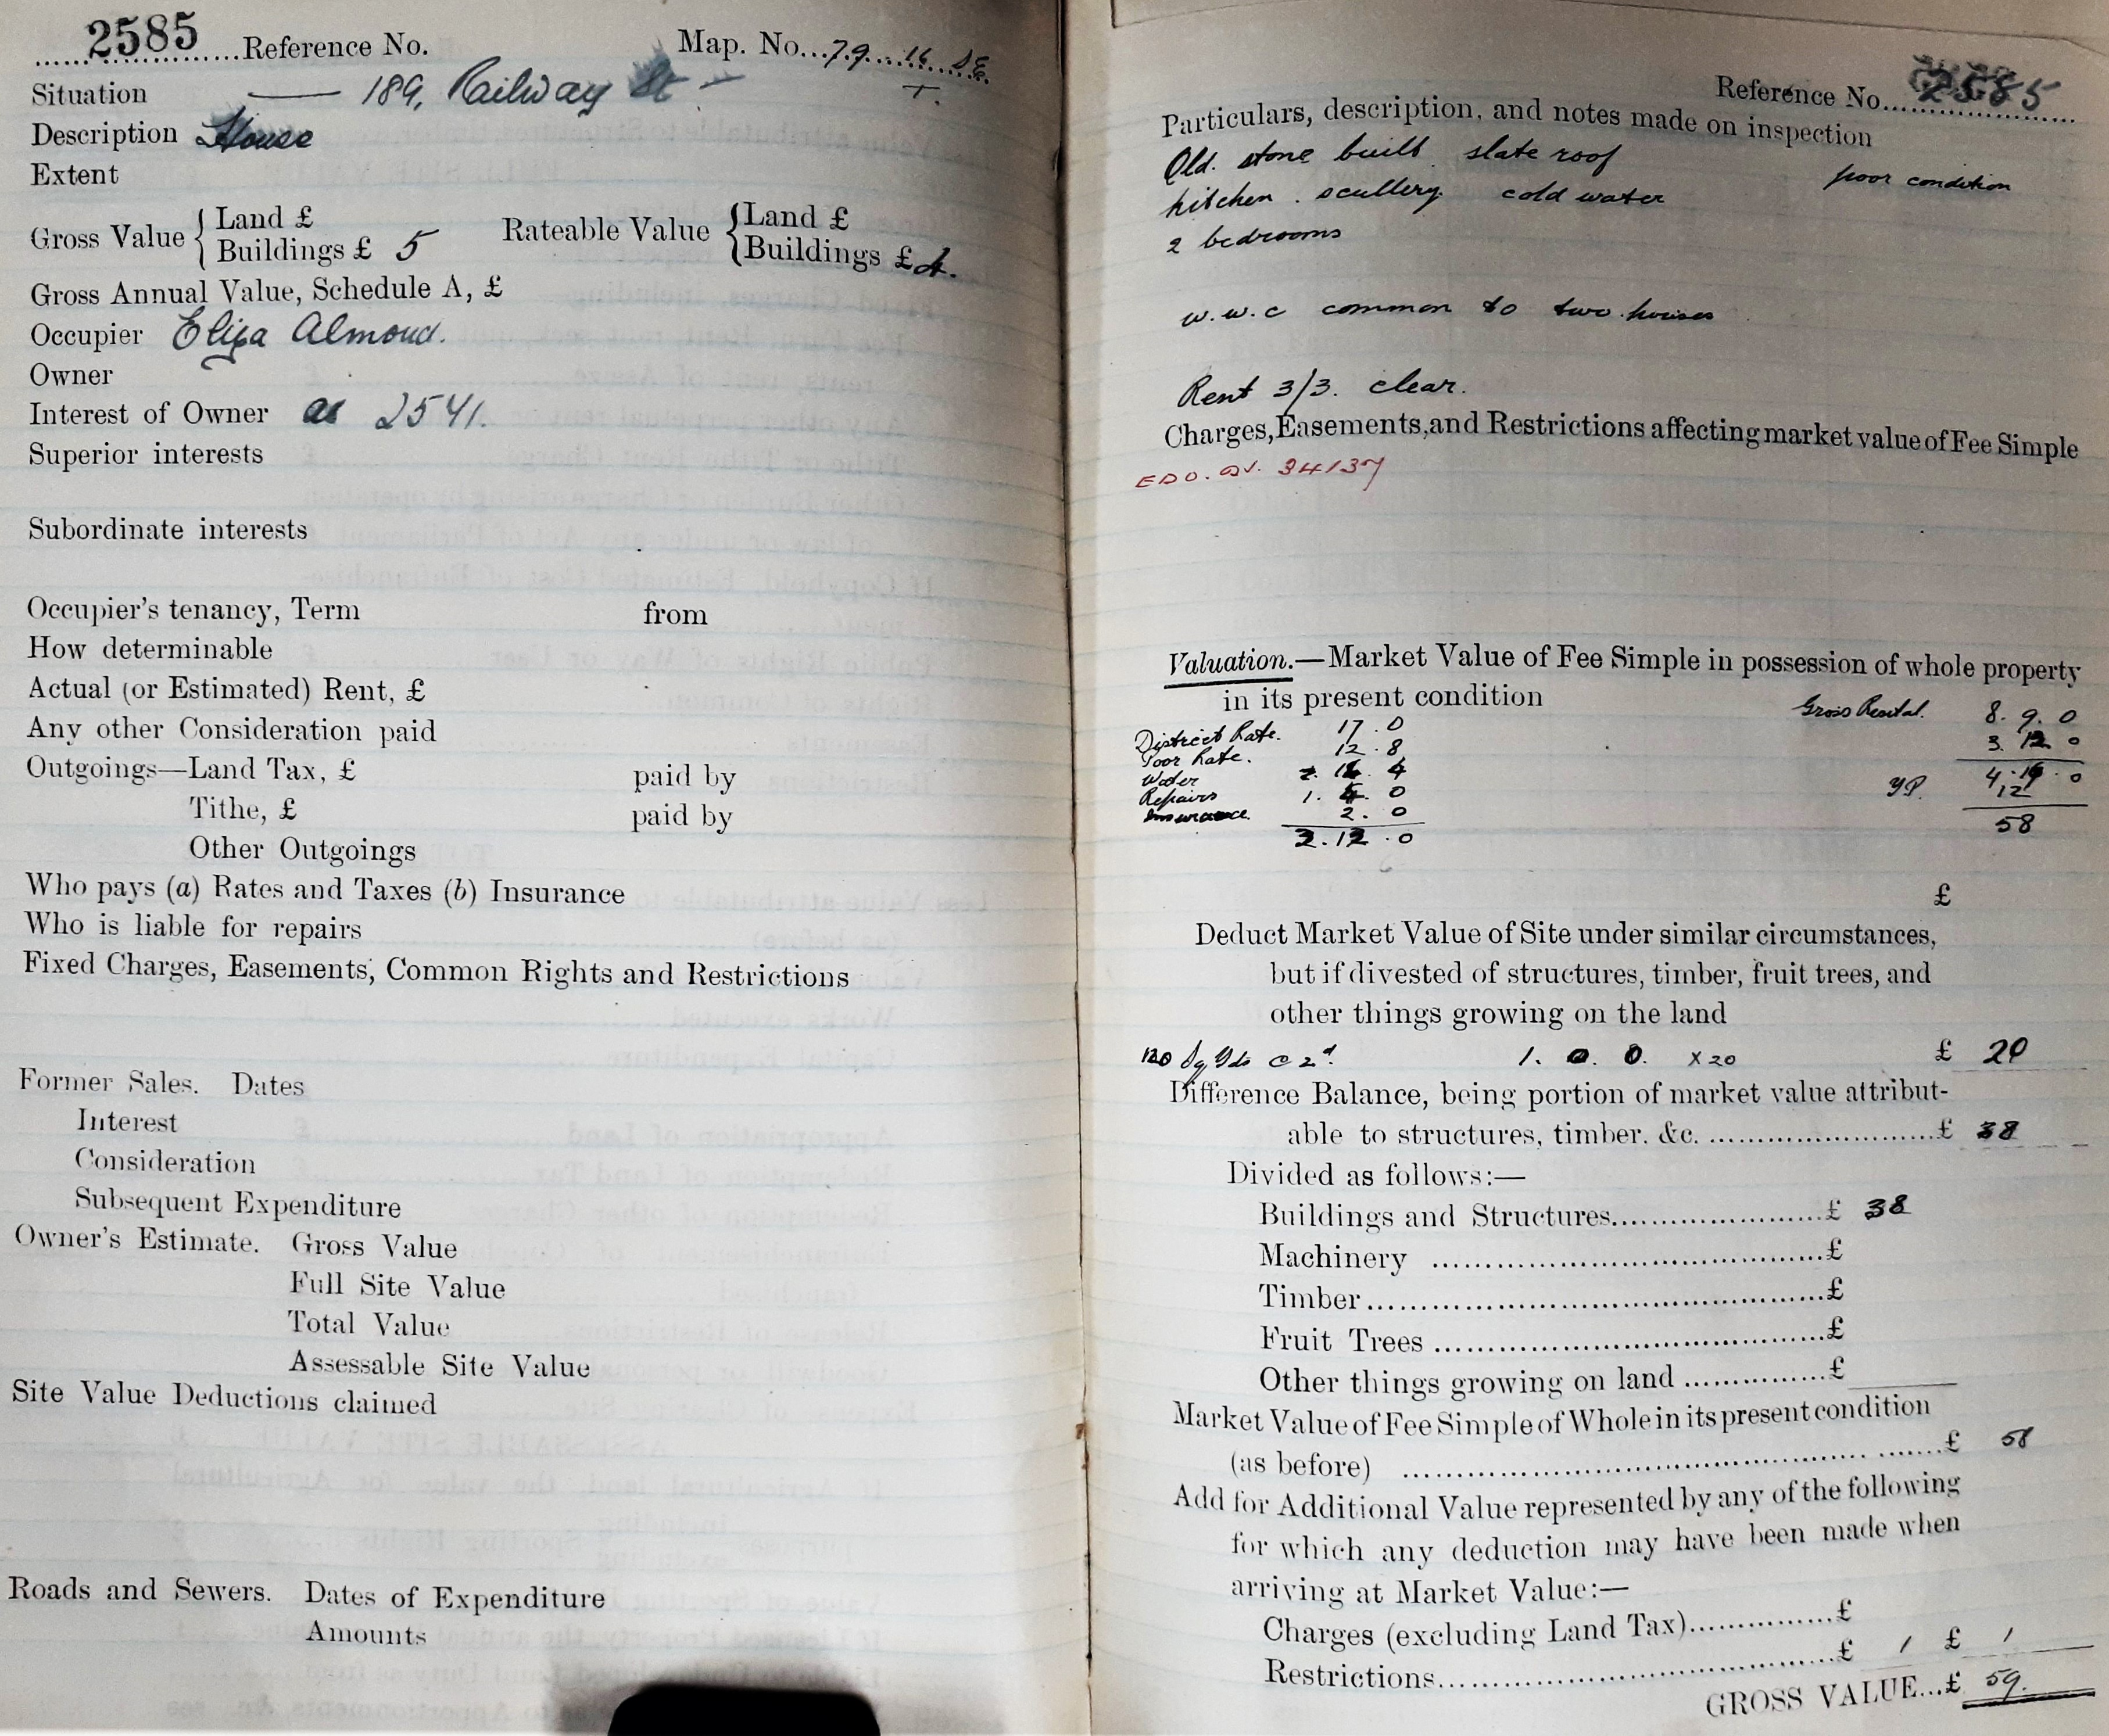 2585 Reference No. Map. No. 79 16 SE
T.
Situation — 189, Railway St —
Description House
Extent
Gross Value { Land £
Buildings £ 5
Rateable Value { Land £
Buildings £ 4.
Gross Annual Value, Schedule A, £
Occupier Eliza Almond.
Owner
Interest of Owner as 2541.
Superior interests
Subordinate interests
Occupier's tenancy, Term from
How determinable
Actual (or Estimated) Rent, £
Any other Consideration paid
Outgoings—Land Tax, £ paid by
Tithe, £ paid by
Other Outgoings
Who pays (a) Rates and Taxes (b) Insurance
Who is liable for repairs
Fixed Charges, Easements, Common Rights and Restrictions
Former Sales. Dates
Interest
Consideration
Subsequent Expenditure
Owner's Estimate. Gross Value
Full Site Value
Total Value
Assessable Site Value
Site Value Deductions claimed
Roads and Sewers. Dates of Expenditure
Amounts
Reference No. 2585
Particulars, description, and notes made on inspection
Old. stone built slate roof poor condition
kitchen. scullery cold water
2 bedrooms
w.w.c common to two houses
Rent 3/3. clear.
Charges, Easements, and Restrictions affecting market value of Fee Simple
34137
Valuation.—Market Value of Fee Simple in possession of whole property
in its present condition
Gross Rental. 8. 9. 0
3. 12 0
4. 0
YP. 12
58
District Rate. 17. 0
Poor Rate. 12. 8
Water 4
Repairs 1. 0
Insurance 2. 0
12. 0
£
Deduct Market Value of Site under similar circumstances,
but if divested of structures, timber, fruit trees, and
other things growing on the land
120 Sq Yds @ 2d. 1. 0. 0. X20 £ 20
Difference Balance, being portion of market value attribut-
able to structures, timber. &c. £ 38
Divided as follows:—
Buildings and Structures £ 38
Machinery £
Timber £
Fruit Trees £
Other things growing on land £
Market Value of Fee Simple of Whole in its present condition
(as before) £ 58
Add for Additional Value represented by any of the following
for which any deduction may have been made when
arriving at Market Value:—
Charges (excluding Land Tax) £
Restrictions £ 1 £ 1
GROSS VALUE...£ 59.